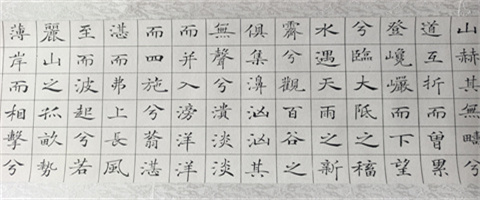 山赫其無疇兮
道互折而曾累
登巉巖而下望
兮臨大阺之稸
水遇天雨之新
霽兮觀百谷之
俱集濞洶洶其
無聲兮潰淡淡
而并入滂洋洋
而四施兮蓊湛
湛而弗上長風
至而波起兮若
麗山之孤畝勢
薄岸而相擊兮